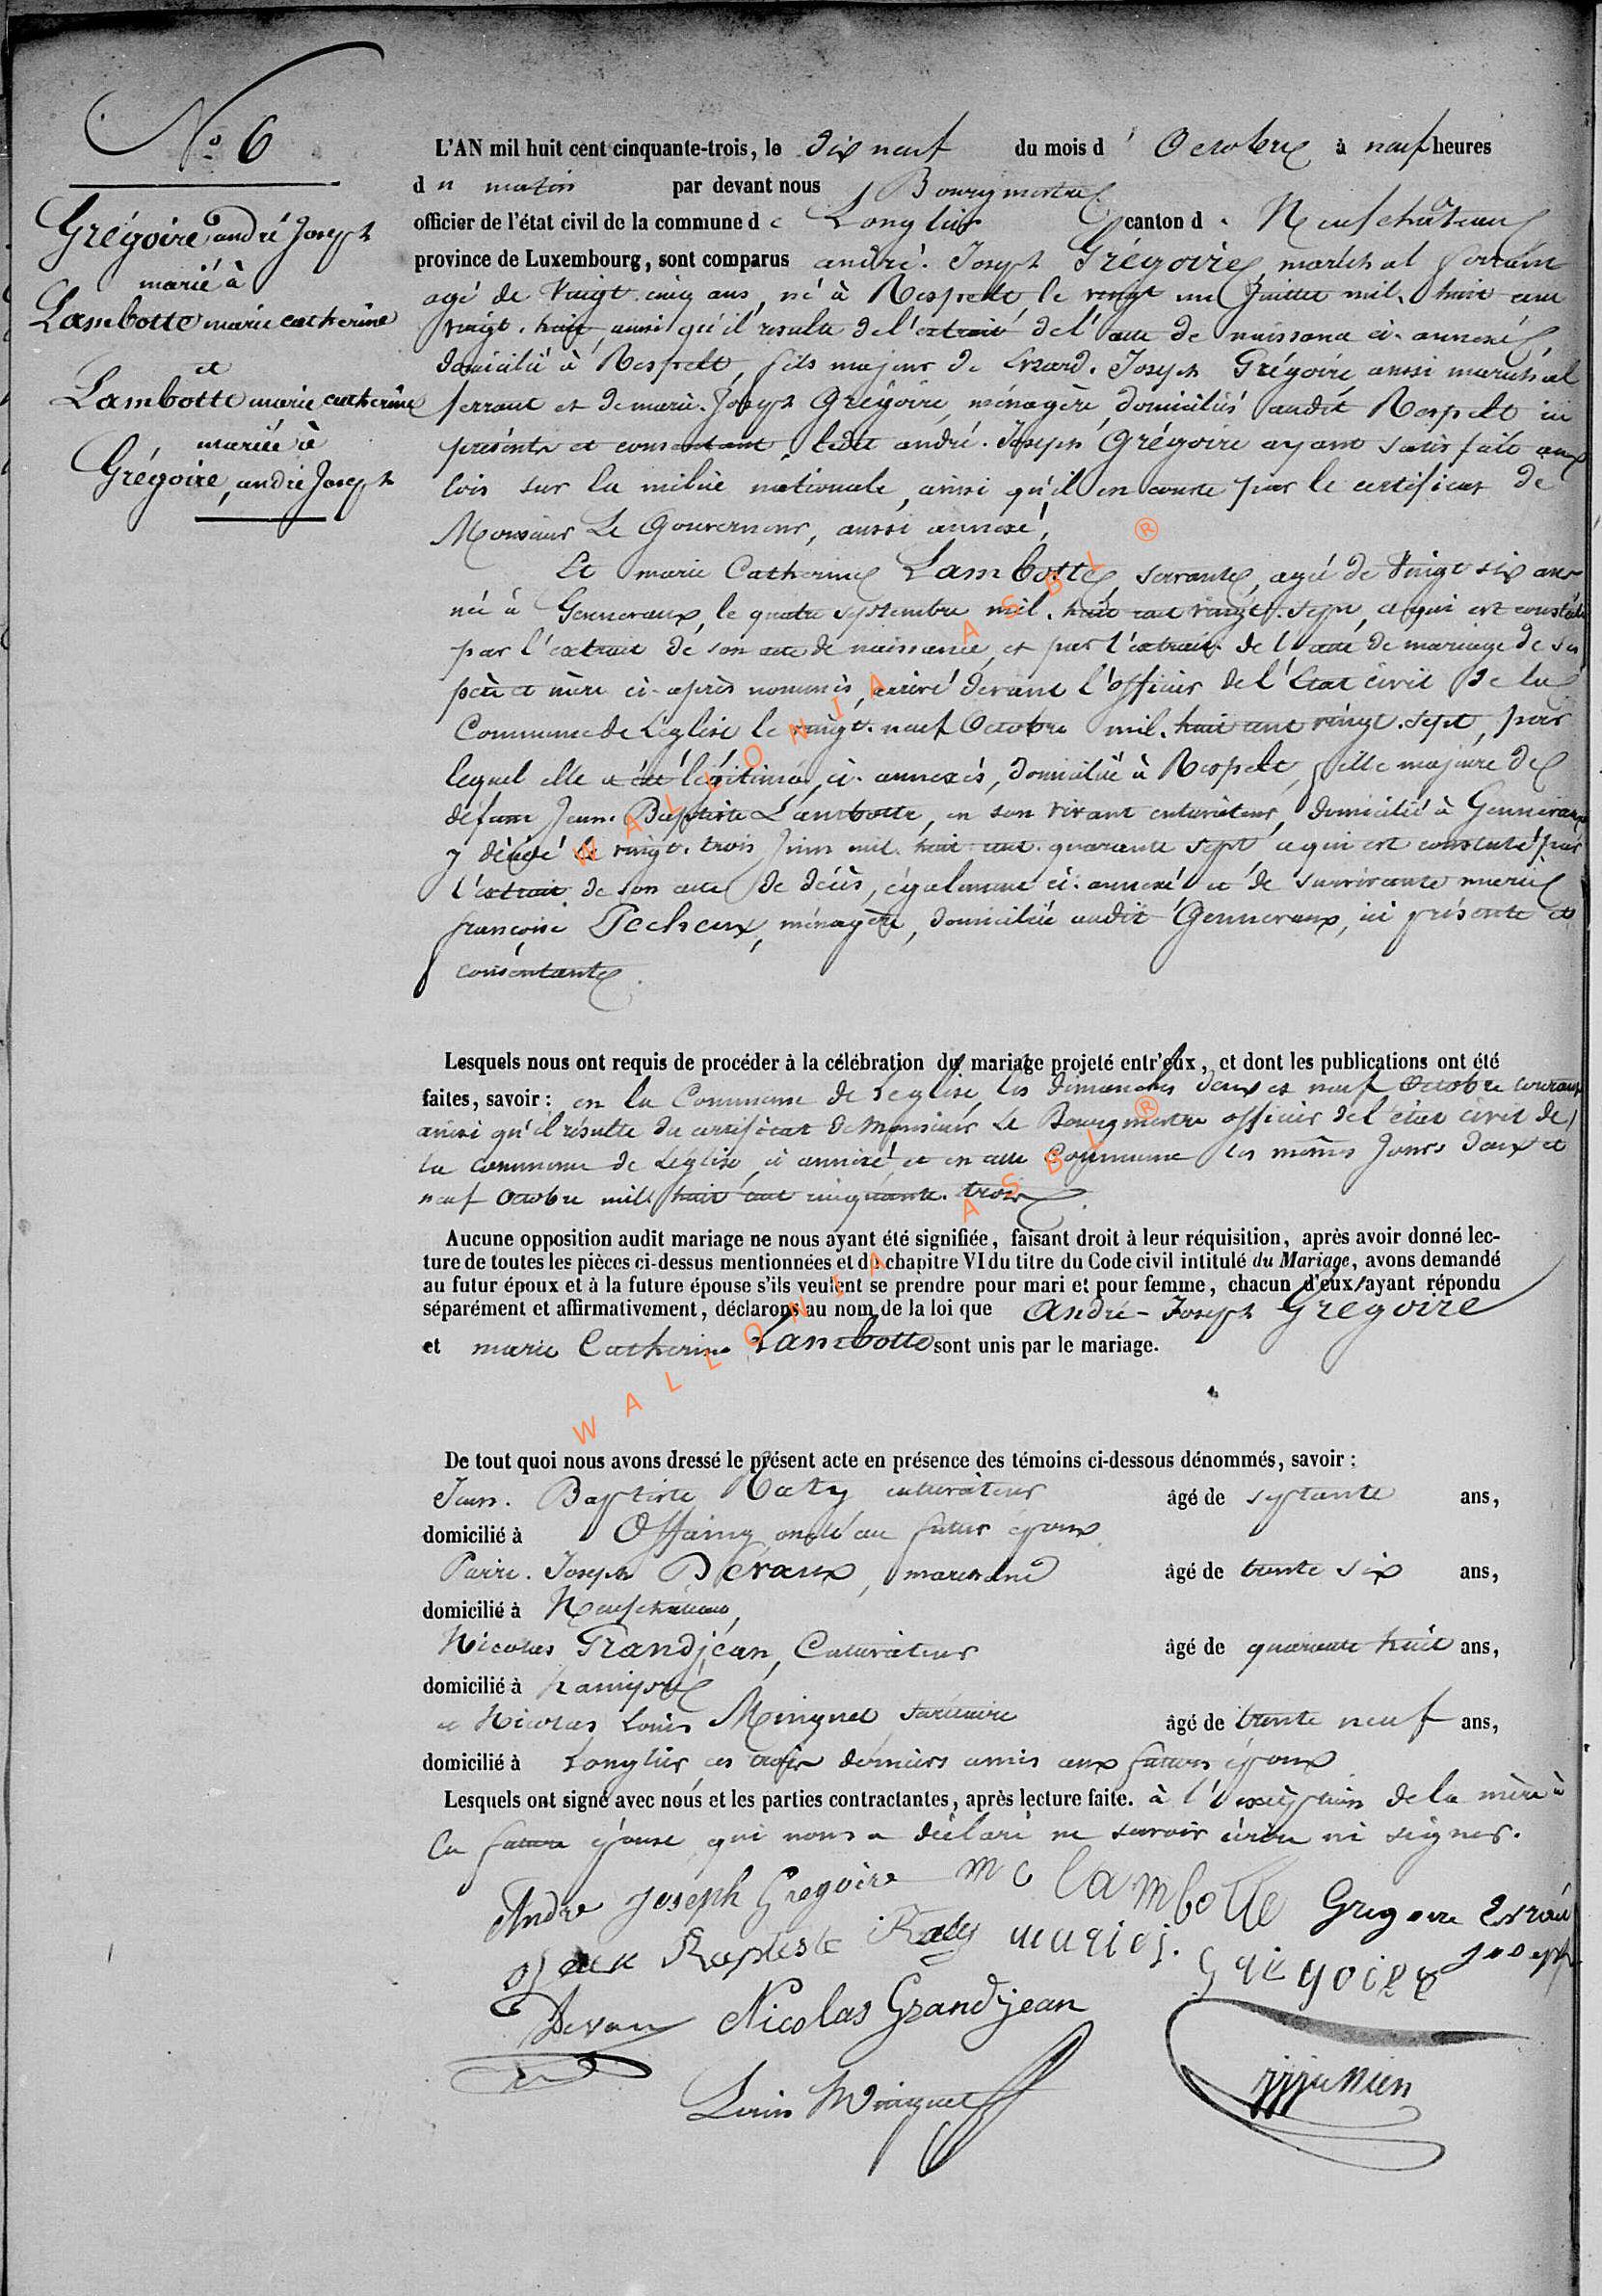 N° 6
Grégoire andré Joseph
marié à
Lambotte marie catherine
et
Lambotte marie catherine
mariée à
Grégoire, andré Joseph
L'AN mil huit cent cinquante-trois, le dix neuf du mois d'Octobre à neuf heures
du matin par devant nous Bourgmestre
officier de l'état civil de la commune de Longlier canton de Neufchâteau
province de Luxembourg, sont comparus andré. Joseph Grégoire, maréchal ferrant
agé de vingt cinq ans, né à Respelt, le vingt un Juillet mil. huit cent
vingt. huit, ainsi qu'il resulte de l'extrait de l'acte de naissance ci-annexé,
domicilié à Respelt, fils majeur de Evrard. Joseph Grégoire, aussi maréchal
ferrant et de marie. Joseph Grégoire, ménagère, domiciliés audit Respelt ici
présents et consentant, ledit andré. Joseph Grégoire ayant satisfait aux
lois sur la milice nationale, ainsi qu'il en conste par le certificat de
Monsieur Le Gouverneur, aussi annexé,
Et marie Catherine Lambotte, servante, agée de Vingt six ans
née à Gennevaux, le quatre septembre mil. huit cent vingt. sept, ce qui est constaté
par l'extrait de son acte de naissance, et par l'extrait de l'acte de mariage de ses
père et mère ci-après nommés, arrivé devant l'officier de l'Etat civil de la
Commune de Léglise le vingt. neuf Octobre mil. huit cent vingt. sept, par
lequel elle a été légitimée, ci-annexés, domiciliée à Respelt, fille majeure de
défunt Jean. Baptiste Lambotte, en son vivant cultivateur, domicilié à Gennevaux
y décédé le vingt. trois Juin mil. huit cent. quarante sept ce qui est constaté par
l'extrait de son acte de décès, également ci-annexé et de survivante marie
françoise Pecheux, ménagère, domiciliée audit Gennevaux, ici présente et
consentante.
Lesquels nous ont requis de procéder à la célébration du mariage projeté entr'eux, et dont les publications ont été
faites, savoir : en la Commune de Léglise, les dimanches deux et neuf Octobre courant
ainsi qu'il résulte du certificat de Monsieur Le Bourgmestre officier de l'état civil de
la commune de Léglise, ci annexé et en cette Commune les mêmes Jours deux et
neuf Octobre mil. huit cent cinquante. trois.
Aucune opposition audit mariage ne nous ayant été signifiée, faisant droit à leur réquisition, après avoir donné lec-
ture de toutes les pièces ci-dessus mentionnées et du chapitre VI du titre du Code civil intitulé du Mariage, avons demandé
au futur époux et à la future épouse s'ils veulent se prendre pour mari et pour femme, chacun d'eux ayant répondu
séparément et affirmativement, déclarons au nom de la loi que André-Joseph Grégoire
et marie Catherine Lambotte sont unis par le mariage.
De tout quoi nous avons dressé le présent acte en présence des témoins ci-dessous dénommés, savoir :
Jean. Baptiste Raty cultivateur âgé de septante ans,
domicilié à Offaing oncle au futur époux.
Pierre. Joseph Dévaux, marchand âgé de trente six ans,
domicilié à Neufchateau,
Nicolas Grandjean, Cultivateur âgé de quarante huit ans,
domicilié à hamipré
et Nicolas Louis Minguet âgé de trente neuf ans,
domicilié à Longlier, ces trois derniers amis aux futurs époux
Lesquels ont signé avec nous et les parties contractantes, après lecture faite. à l'exception de la mère à
la future épouse, qui nous a déclaré ne savoir écrire ni signer.
Andre Joseph Gregoire M C lambotte Gregoire Evrard Joseph
Jean Baptiste Raty marie j. Gregoire
Devaux Nicolas Grandjean
Louis Minguet
WALLONIA ASBL ®
WALLONIA ASBL ®